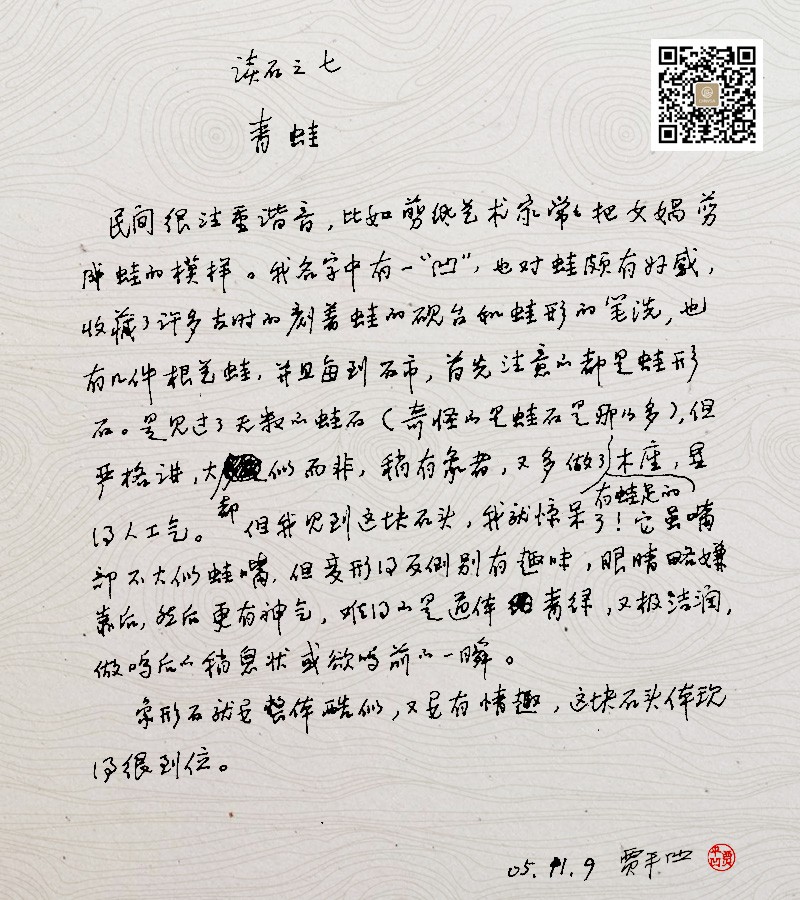 读石之七
青蛙
民间很注重谐音，比如剪纸艺术家常常把女娲剪
成蛙的模样。我名字中有一“凹”，也对蛙颇有好感，
收藏了许多古时的刻着蛙的砚台和蛙形的笔洗，也
有几件根艺蛙，并且每到石市，首先注意的都是蛙形
石。是见过了无数的蛙石（奇怪的是蛙石是那么多），但
严格讲，大都似而非，稍有象者，又多做了有蛙足的木座，显
得人工气。但我见到这块石头，我就惊呆了！它虽嘴
部不大似蛙嘴，但变形得反倒别有趣味，眼睛略嫌
靠后，然后更有神气，难得的是通体青绿，又极洁润，
做鸣后的稍息状或欲鸣前的一瞬。
象形石就是整体酷似，又具有情趣，这块石头体现
得很到位。
05.11.9 贾平凹
贾平凹